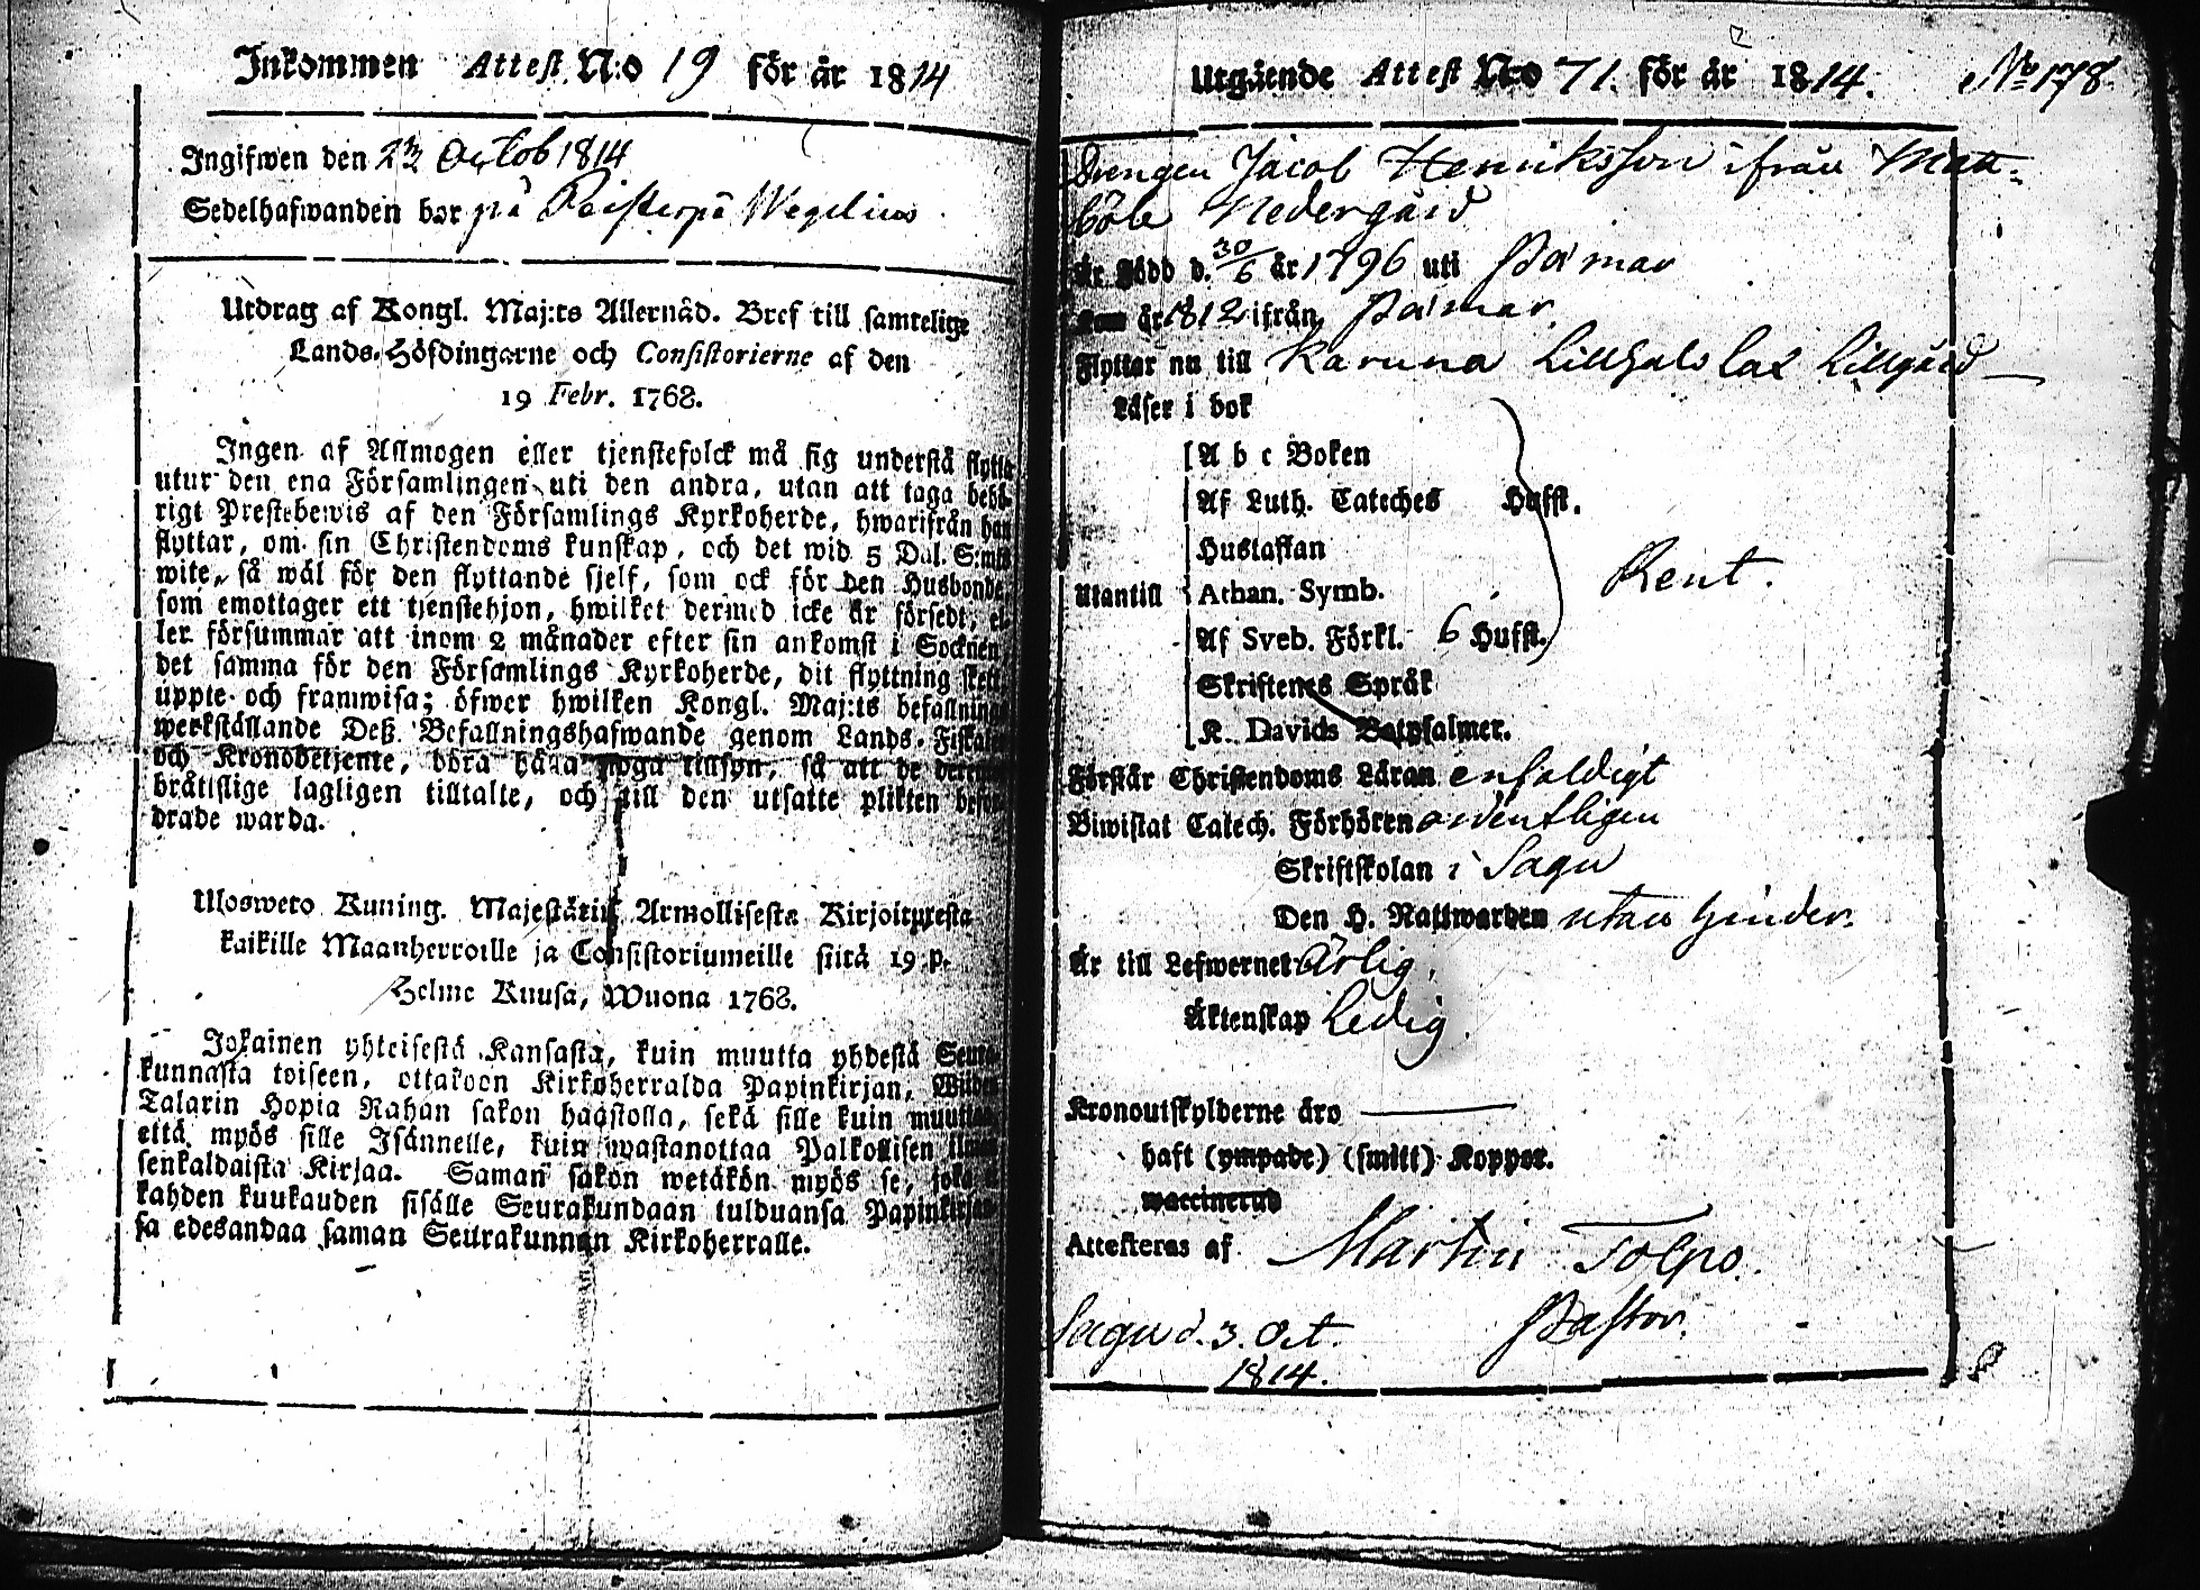 Inkommen Attest N:o 19 för år 1814
Ingifwen den 23 Octob 1814
Sedelhafwanden bor på Wegelius
Utdrag af Kongl. Maj:ts Allernåd. Bref till samtelige
Lands-Höfdingarne och Consistorierne af den
19 Febr. 1768.
Ingen af Allmogen eller tjenstefolck må sig understå flytta
utur den ena Församlingen uti den andra, utan att taga behö-
rigt Prestebewis af den Församlings Kyrkoherde, hwarifrån han
flyttar, om sin Christendoms kunskap, och det wid 5 Dal. S:mts
wite, så wäl för den flyttande sjelf, som ock för den Husbonde,
som emottager ett tjenstehjon, hwilket dermed icke är försedt, el-
ler försummar att inom 2 månader efter sin ankomst i Socknen,
det samma för den Församlings Kyrkoherde, dit flyttning skett,
uppte och framwisa; öfwer hwilken Kongl. Maj:ts befallnings
werkställande Deß Befallningshafwande genom Lands-Fiskaler
och Kronobetjente, böra hafa noga tillsyn, så att de
bråttslige lagligen tilltalte, och till den utsatte plikten befor-
drade warda.
Ulosweto Kuning. Majestätin Armollisesta Kirjoituxesta
kaikille Maanherroille ja Consistoriumeille siitä 19 p.
Helme Kuusa, Wuona 1768.
Jokainen yhteisestä Kansasta, kuin muutta yhdestä Seura-
kunnasta toiseen, ottakoon Kirkoherralda Papinkirjan, Wiiden
Talarin Hopia Rahan sakon haastolla, sekä sille kuin muuttaa
että myös sille Isännelle, kuin wastanottaa Palkollisen ilman
senkaldaista Kirjaa. Saman sakon wetäkön myös se, joka ei
kahden kuukauden sisälle Seurakundaan tulduansa Papinkirjan-
sa edesandaa saman Seurakunnan Kirkoherralle.
Utgående Attest N:o 71. för år 1814. No 178
Drengen Jacob Henriksson ifrån Matt-
böle Nedergård
Är Född d. 30/6 år 1796 uti Pämar
Kom år 1812 ifrån Pämar
Flyttar nu till Karuna Lillgård
Läser i bok
A b c Boken
Af Luth. Cateches Hufst.
Hustaflan
Utantill Athan. Symb. Rent.
Af Sveb. Förkl. 6 Hufst.
Skriftenes Språk
K. Davids Botpsalmer.
Förstår Christendoms Läran enfaldigt
Biwistat Catech. Förhören ordentligen
Skriftskolan i Sagu
Den H. Nattwarden utan hinder
Är till Lefwernet Ärlig.
Äktenskap Ledig.
Kronoutskylderne äro
haft (ympade) (smitt) Koppor.
waccinerad
Attesteras af Martin Tolpo.
Sagu d. 3. Oct. Pastor.
1814.